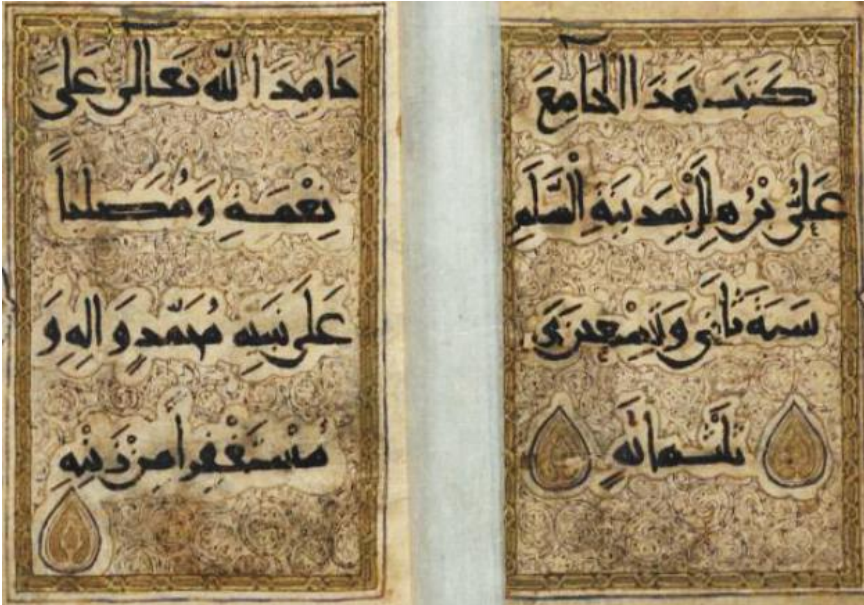 كتب هذا الجامع
عَلىُّ بْنُ هِلَالٍ بِمَدينَةِ السَّلَمِ
سنَة ثانى وَتِسْعين
ثلثمائَةٍ
حَامِدًا لله تعَالَى عَلىَ
نِعَمِهِ وَمُصَليًا
عَلَى نَبيِهِ مُحَمّدٍ وَالِهِ وَ
مُسْتَغْفِرًا مِنْ ذَنْبِهِ